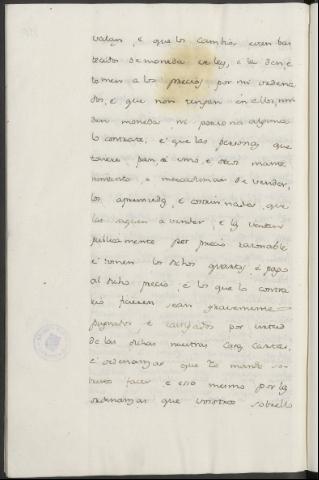 valan, e que los cambios esten bas
tecidos de moneda en ley, e la den, e
tomen a los precios por mi ordena
dos, e que non tengan en ellos, nin
den moneda, ni persona alguna
lo contrate; e que las personas que
tovere pan, e vino, e otros mante
nimientos, e mercadurias de vender,
los apremiedes, e costringades, que
las saquen a vender, e las vendan
publicamente por precio razonable
e tomen los dichos quartos, e pago
al dicho precio, e los que lo contra
rio ficieren sean gravemente
pugnidos e castigados por virtud
de las dichas nuestras cartas,
e ordenanzas que Yo mando so
facer, e eso mismo por las
ordenanzas que vosotros sobrello